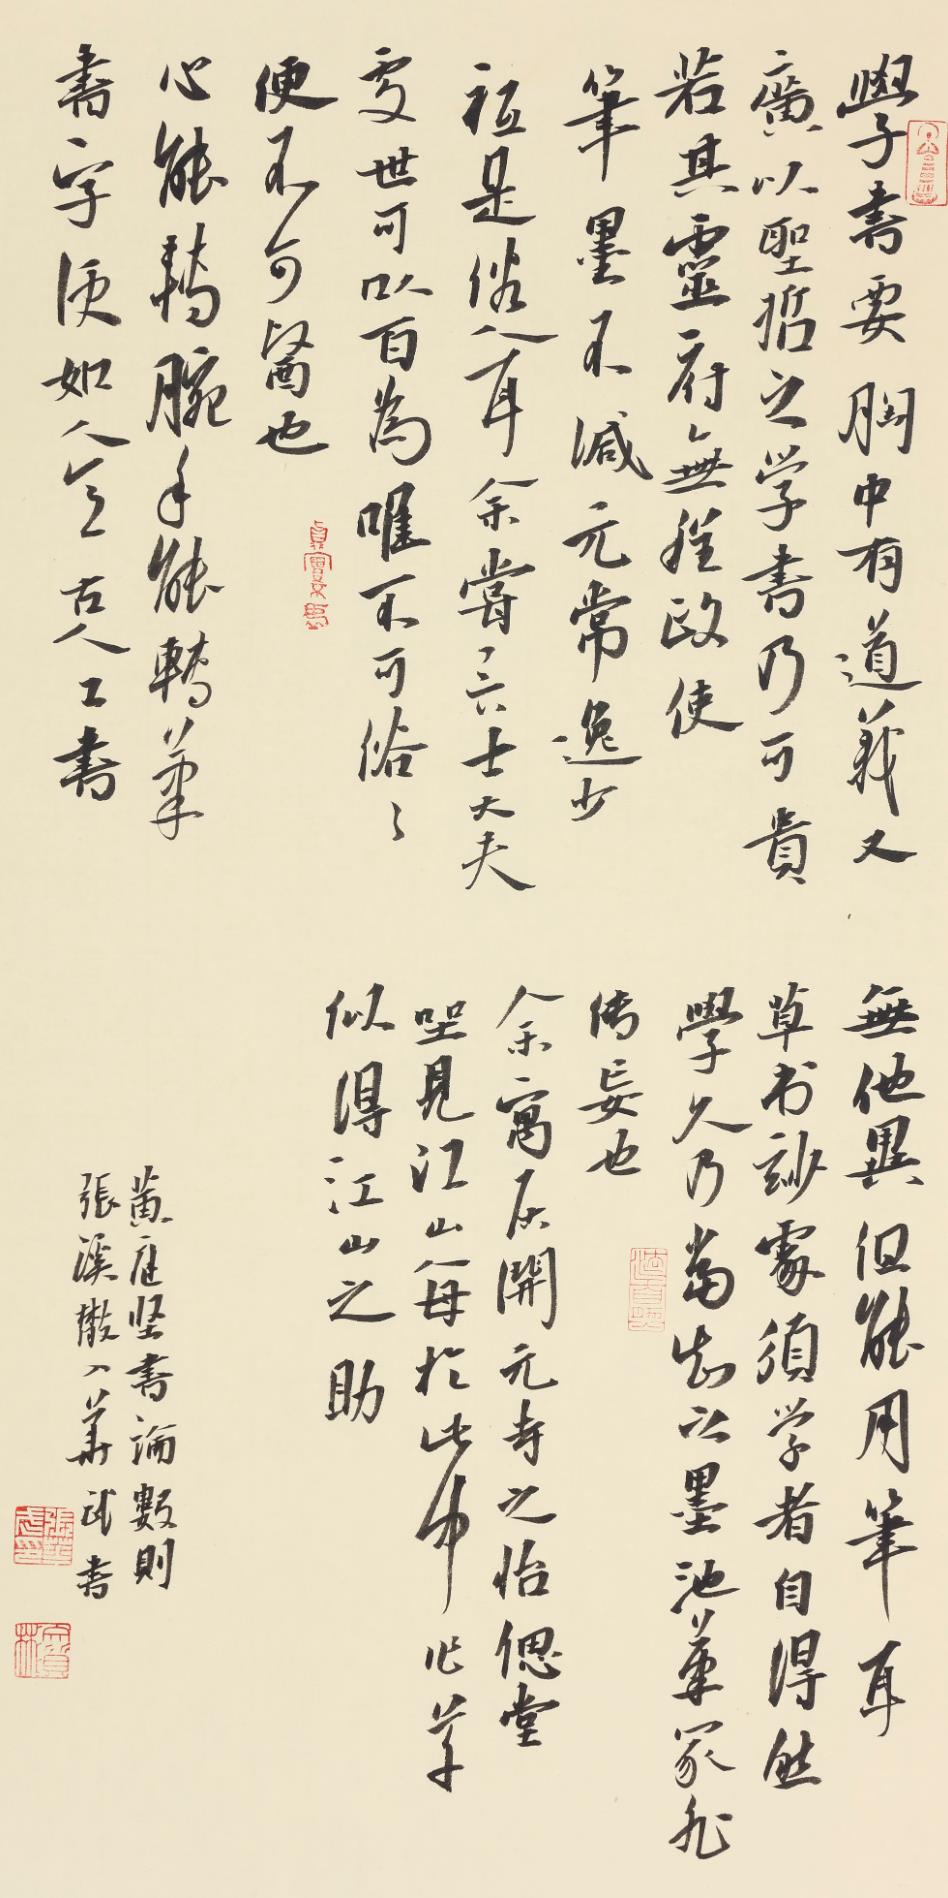 學書要胸中有道義又
廣以聖哲之学書乃可貴
若其靈府無程政使
筆墨不減元常逸少
秪是俗人耳余嘗言士大夫
處世可以百為唯不可俗〻
便不可醫也
心能轉腕手能轉筆
書字便如人意古人工書
無他異但能用筆耳
草书妙處須学者自得然
學久乃當知之墨池筆冢非
傳妄也
余寓居開元寺之怡偲堂
坐見江山每於此中作草
似得江山之助
黄庭坚書論數則
張溪散人華武書